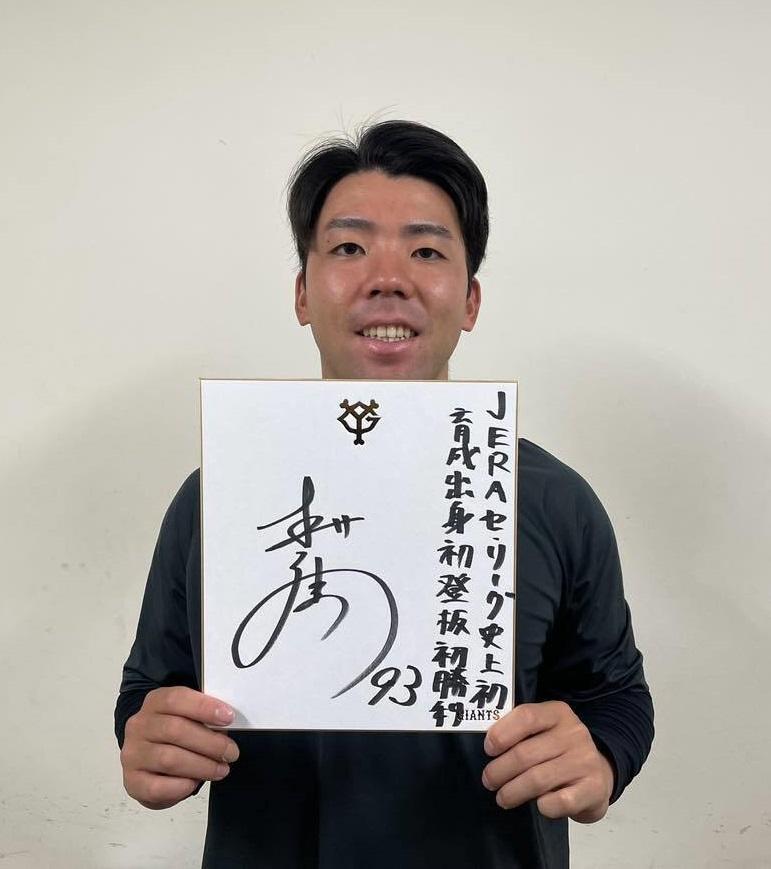 JERAセ・リーグ史上初
育成出身初登板初勝利
93
GIANTS